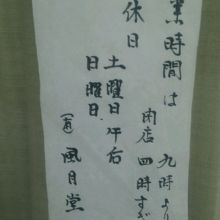 業時間は 九時より
閉店 四時すぎ
休日
土曜日午后
日曜日
(有) 風月堂